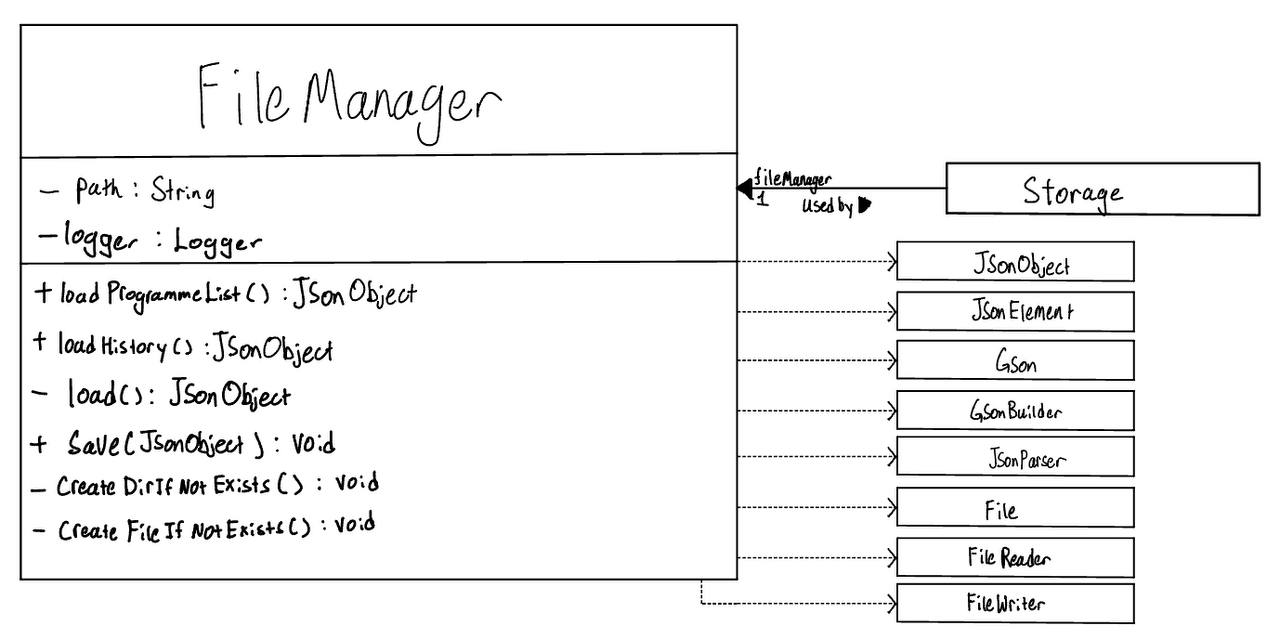 FileManager
- Path : String
- logger : Logger
+ loadProgrammeList() : JSonObject
+ loadHistory() : JSonObject
- load() : JSonObject
+ Save(JsonObject) : Void
- Create DirIf Not Exists() : Void
- Create File If Not Exists() : Void
fileManager
1
Used by
Storage
JSonObject
JSonElement
Gson
GsonBuilder
JsonParser
File
File Reader
FileWriter